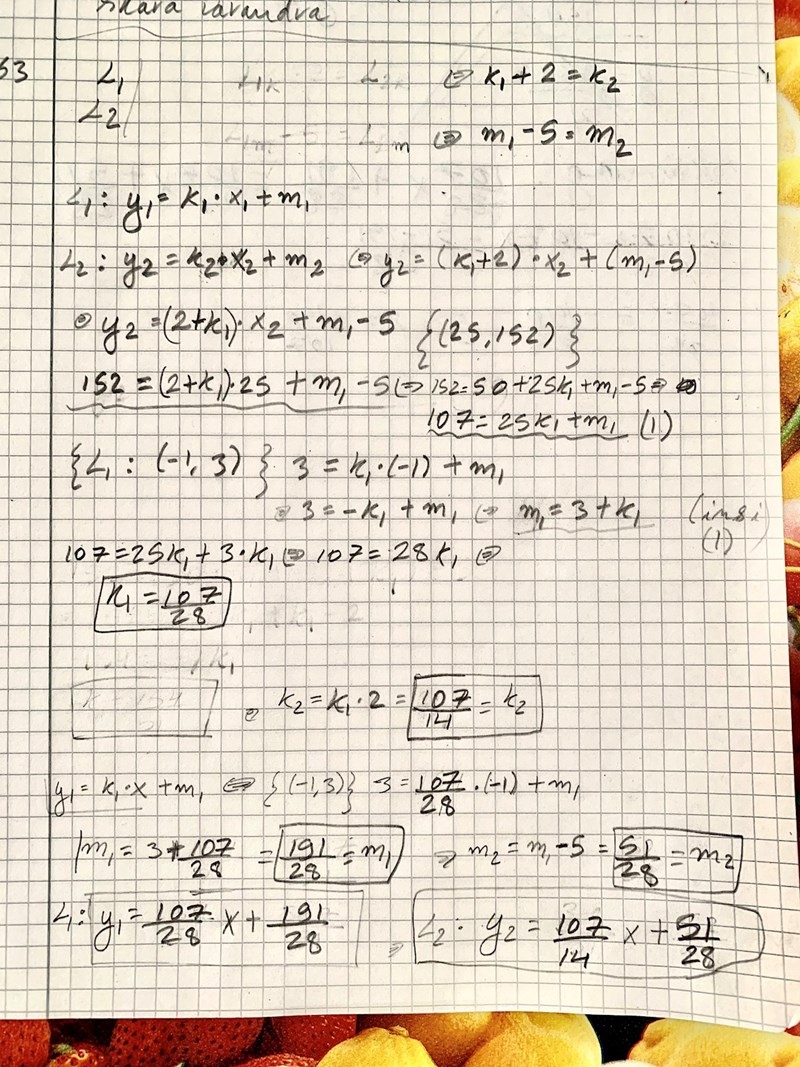 53 L₁ ⇔ k₁ + 2 = k₂
L₂ ⇔ m₁ - 5 = m₂
L₁: y₁ = k₁ · x₁ + m₁
L₂: y₂ = k₂ · x₂ + m₂ ⇔ y₂ = (k₁+2) · x₂ + (m₁-5)
⇔ y₂ = (2+k₁) · x₂ + m₁ - 5 {(25, 152)}
152 = (2+k₁) · 25 + m₁ - 5 ⇔ 152 = 50 + 25k₁ + m₁ - 5 ⇔
107 = 25k₁ + m₁ (1)
{L₁ : (-1, 3)} 3 = k₁ · (-1) + m₁
⇔ 3 = -k₁ + m₁ ⇔ m₁ = 3 + k₁ (ins i
(1)
107 = 25k₁ + 3 · k₁ ⇔ 107 = 28k₁ ⇔
k₁ = 107/28
⇔ k₂ = k₁ · 2 = 107/14 = k₂
y₁ = k₁ · x + m₁ ⇔ {(-1, 3)} 3 = 107/28 · (-1) + m₁
m₁ = 3 + 107/28 = 191/28 = m₁ ⇔ m₂ = m₁ - 5 = 51/28 = m₂
L₁: y₁ = 107/28 x + 191/28 ⇔ L₂: y₂ = 107/14 x + 51/28